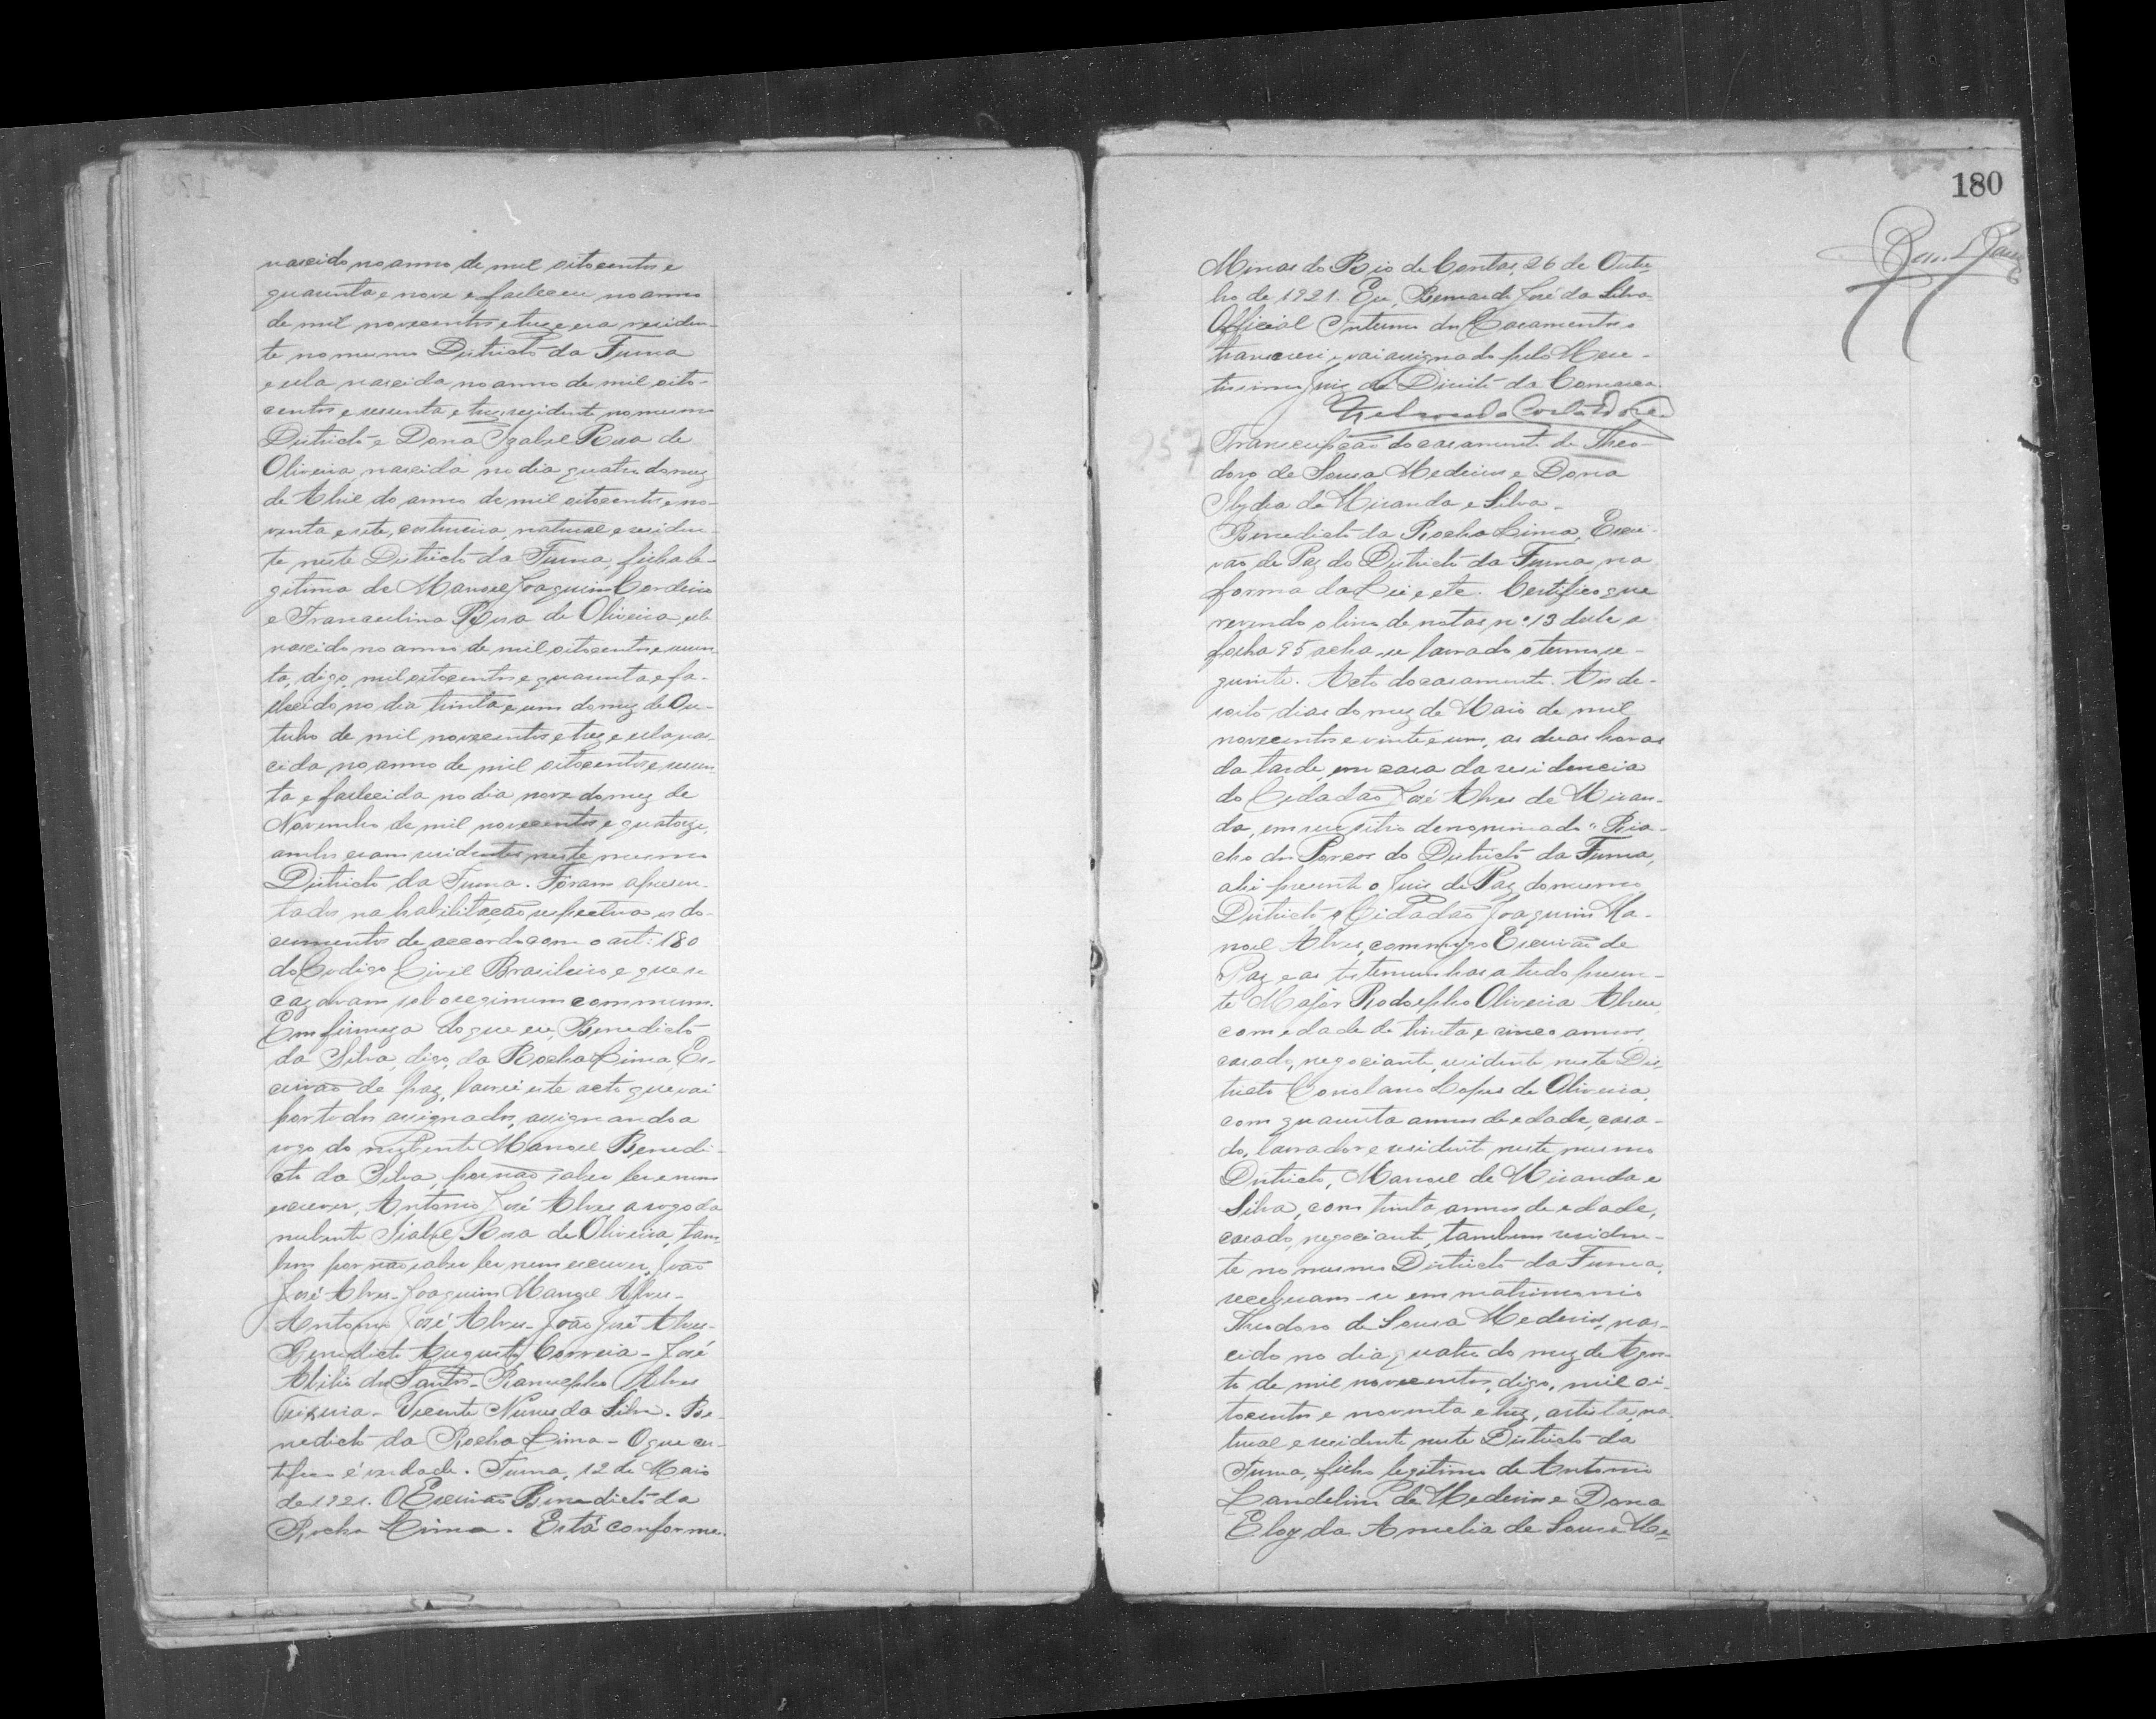 nascido no anno de mil oitocentos e
quarenta e nove e falleceu no anno
de mil novecentos e treze era residen-
te no mesmo Districto da Furna
e ella nascida no anno de mil oito-
centos e sessenta e trez, residente no mesmo
Districto e Dona Izabel Rosa de
Oliveira nascida no dia quatro do mez
de Abril do anno de mil oitocentos e no-
venta e sete, costureira, natural e residen-
te neste Districto da Furna, filha le-
gitima de Manoel Joaquim Cordeiro
e Francelina Rosa de Oliveira, elle
nascido no anno de mil oitocentos e sessen-
ta, digo, mil oitocentos e quarenta e fa-
llecido no dia trinta e um do mez de Ou-
tubro de mil novecentos e treze e ella nas-
cida no anno de mil oitocentos e sessen-
ta e fallecida no dia nove do mez de
Novembro de mil novecentos e quatorze,
ambos eram residentes neste mesmo
Districto da Furna. Foram apresen-
tados na habilitação respectiva os do-
cumentos de accordo com o art: 180
do Codigo Civil Brasileiro e que se
cazavam sob o regimem commum.
Em firmeza do que eu, Benedicto
da Silva, digo, da Rocha Lima, Es-
crivão de paz, lavrei este acto que vai
por todos assignados, assignando a
rogo do nubente Manoel Benedi-
cto da Silva, por não saber ler e nem
escrever, Antonio José Alves a rogo da
nubente Isabel Rosa de Oliveira, tam-
bem por não saber ler nem escrever, João
José Alves - Joaquim Manoel Alves -
Antonio José Alves - João José Alves -
Benedicto Augusto Correia - José
Abilio dos Santos - Ranulpho Alves
Teixeira - Vicente Nunes da Silva. Be-
nedicto da Rocha Lima - O que cer-
tifico é verdade. Furna, 12 de Maio
de 1921. O Escrivão Benedicto da
Rocha Lima. Está conforme.
180
Minas do Rio de Contas, 26 de Outu-
bro de 1921. Eu, Bernardo José da Silva
Official Interino dos Casamentos o
transcrevi e vai assignado pelo Mere-
tissimo Juiz de Direito da Comarca.
Transcripção do casamento de Theo-
doro de Sousa Medeiros e Dona
Ilydia de Miranda e Silva.
Benedicto da Rocha Lima, Escri-
vão de Paz do Districto da Furna, na
forma da Lei e etc. Certifico que
revendo o livro de notas nº 13 delle a
folha 95 acha-se lavrado o termo se-
guinte. Acto do casamento. Aos de-
soito dias do mez de Maio de mil
novecentos e vinte e um, as duas horas
da tarde, em casa da residencia
do Cidadão José Alves de Miran-
da, em seu sitio denominado "Ria-
cho dos Porcos do Districto da Furna,
ahi presente o Juiz de Paz do mesmo
Districto, o Cidadão Joaquim Ma-
noel Alves, commigo Escrivão de
Paz e as testemunhas a tudo presen-
te Major Rodolpho Oliveira Abreu,
com edade de trinta e cinco annos,
casado, negociante, residente neste Dis-
tricto Coriolano Lopes de Oliveira,
com quarenta annos de edade, casa-
do, lavrador e residente neste mesmo
Districto, Manoel de Miranda e
Silva, com trinta annos de edade,
casado, negociante, tambem residen-
te no mesmo Districto da Furna,
receberam-se em matrimonio
Theodoro de Sousa Medeiros, nas-
cido no dia quatro do mez de Agos-
to de mil novecentos, digo, mil oi-
tocentos e noventa e trez, artista, na-
tural e residente neste Districto da
Furna, filho legitimo de Antonio
Landelino de Medeiros e Dona
Eloyda Amelia de Sousa Me-